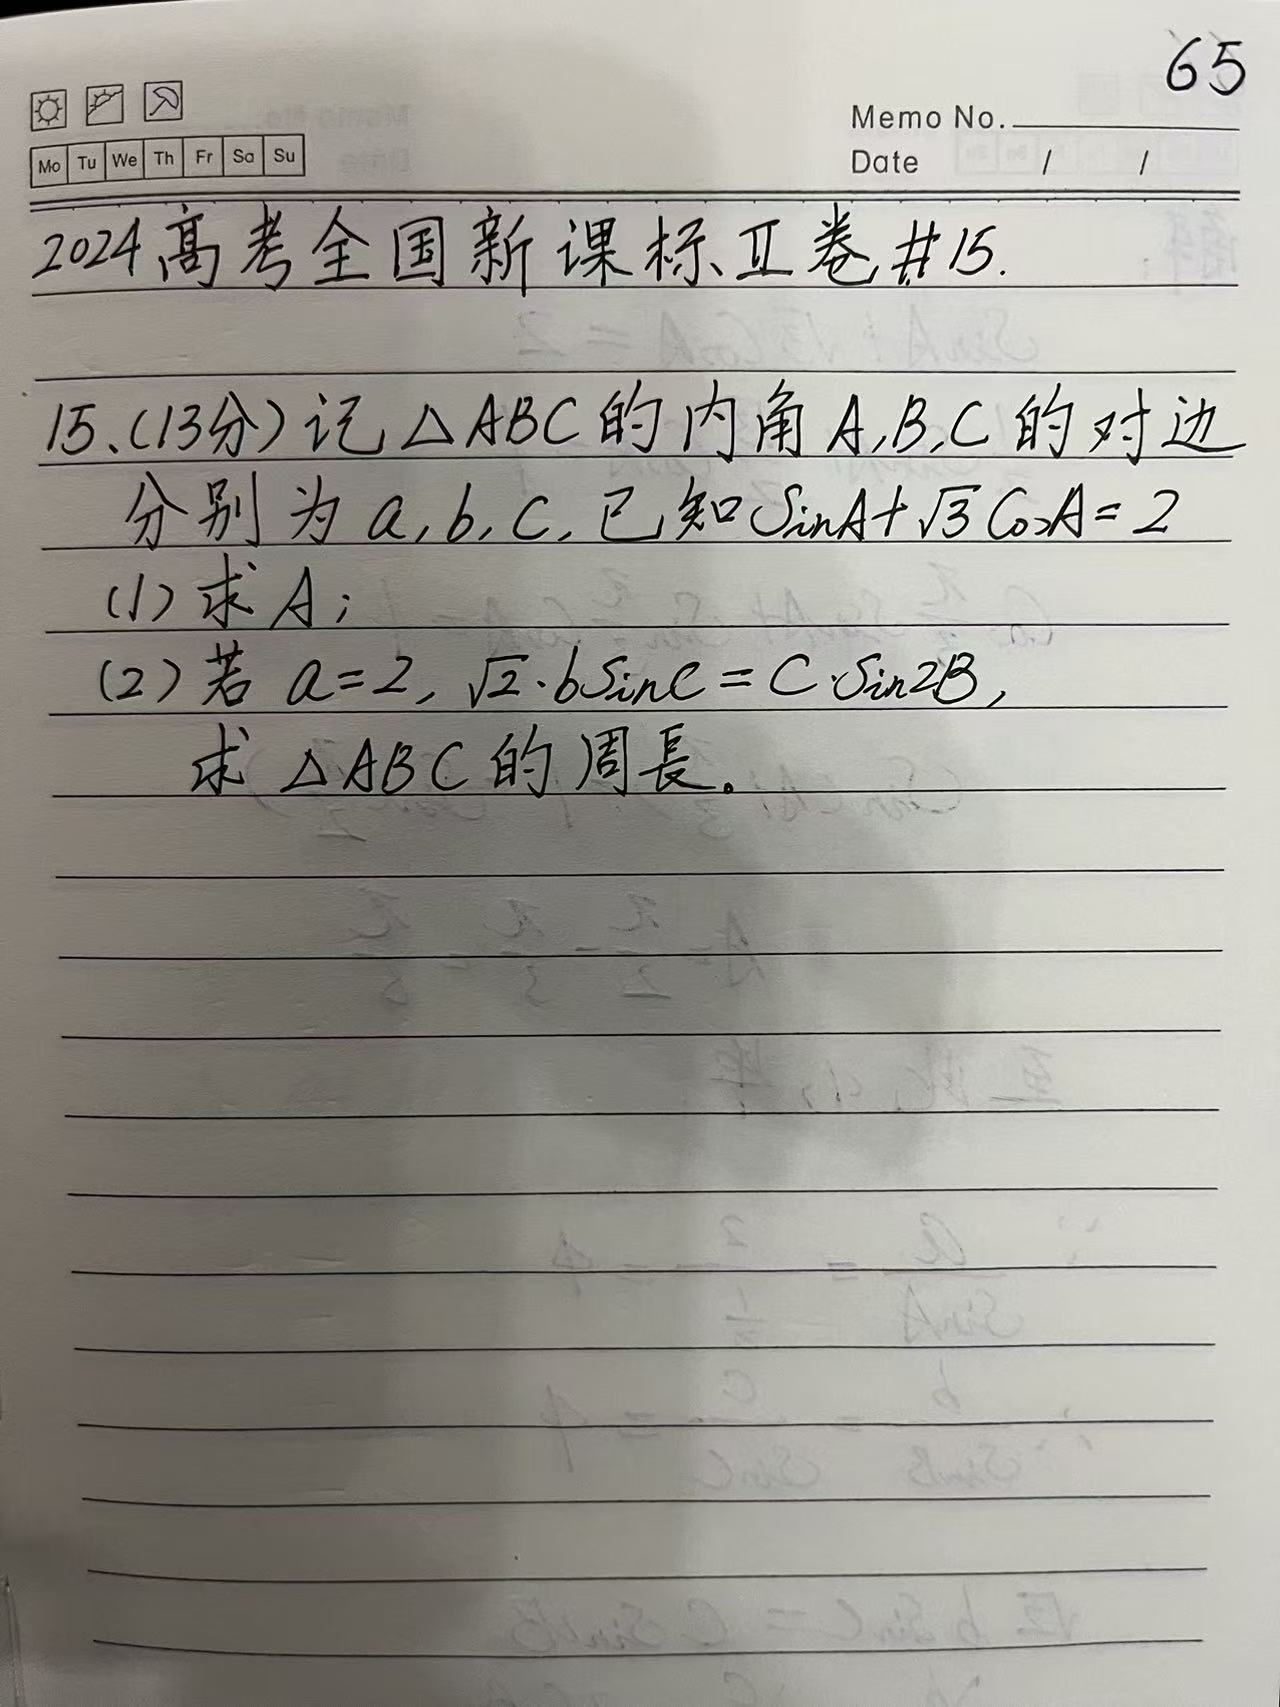 65
Memo No.
Mo Tu We Th Fr Sa Su
Date / /
2024高考全国新课标Ⅱ卷#15.
15.(13分)记△ABC的内角A,B,C的对边
分别为a,b,c,已知SinA+√3CosA=2
(1)求A;
(2)若a=2,√2·bSinC=C·Sin2B,
求△ABC的周長。